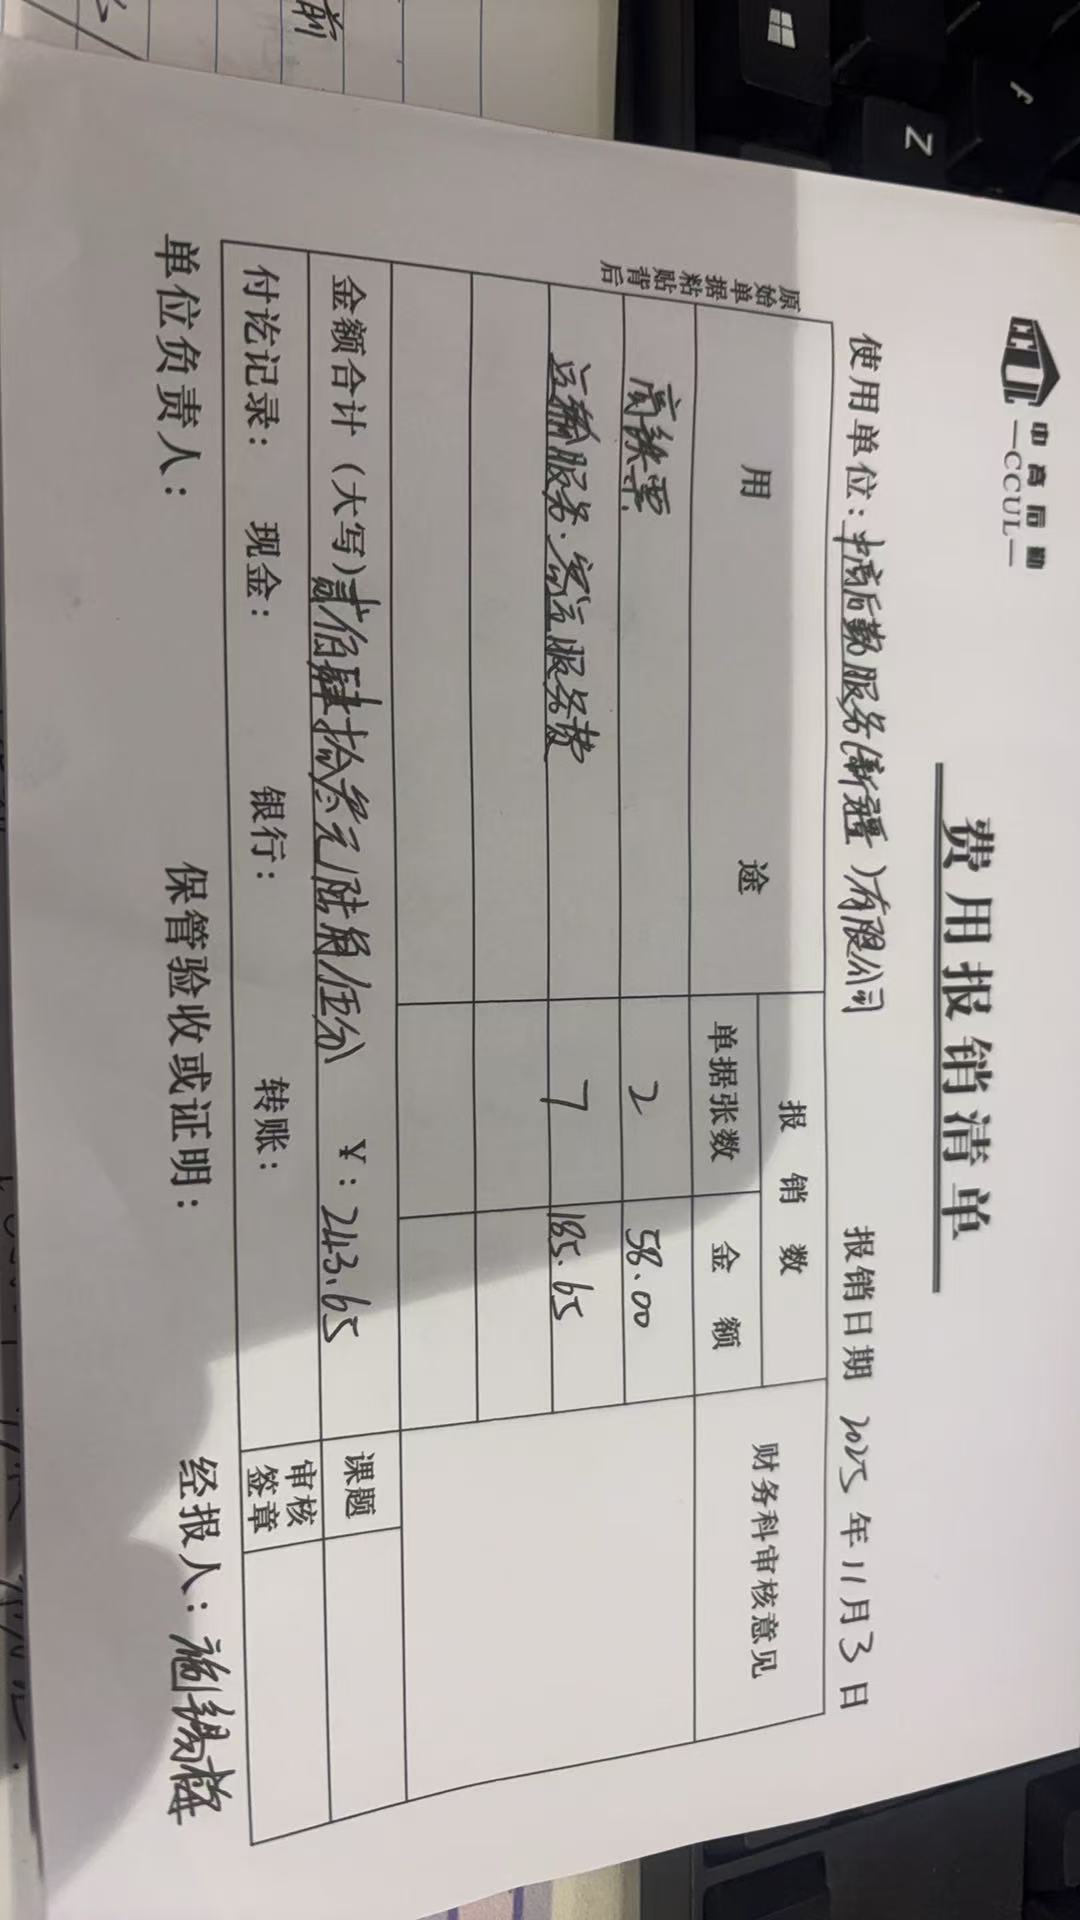 前
Z
f
中高后勤
—CCUL—
费用报销清单
使用单位：中高后勤服务(新疆)有限公司 报销日期 2025年11月3日
原始单据粘贴背后
用途 报销数 财务科审核意见
单据张数 金额
高铁票 2 58.00
运输服务·客运服务费 7 185.65
金额合计（大写）贰佰肆拾叁元陆角伍分 ￥：243.65 课题
付讫记录： 现金： 银行： 转账： 审核签章
单位负责人： 保管验收或证明： 经报人：